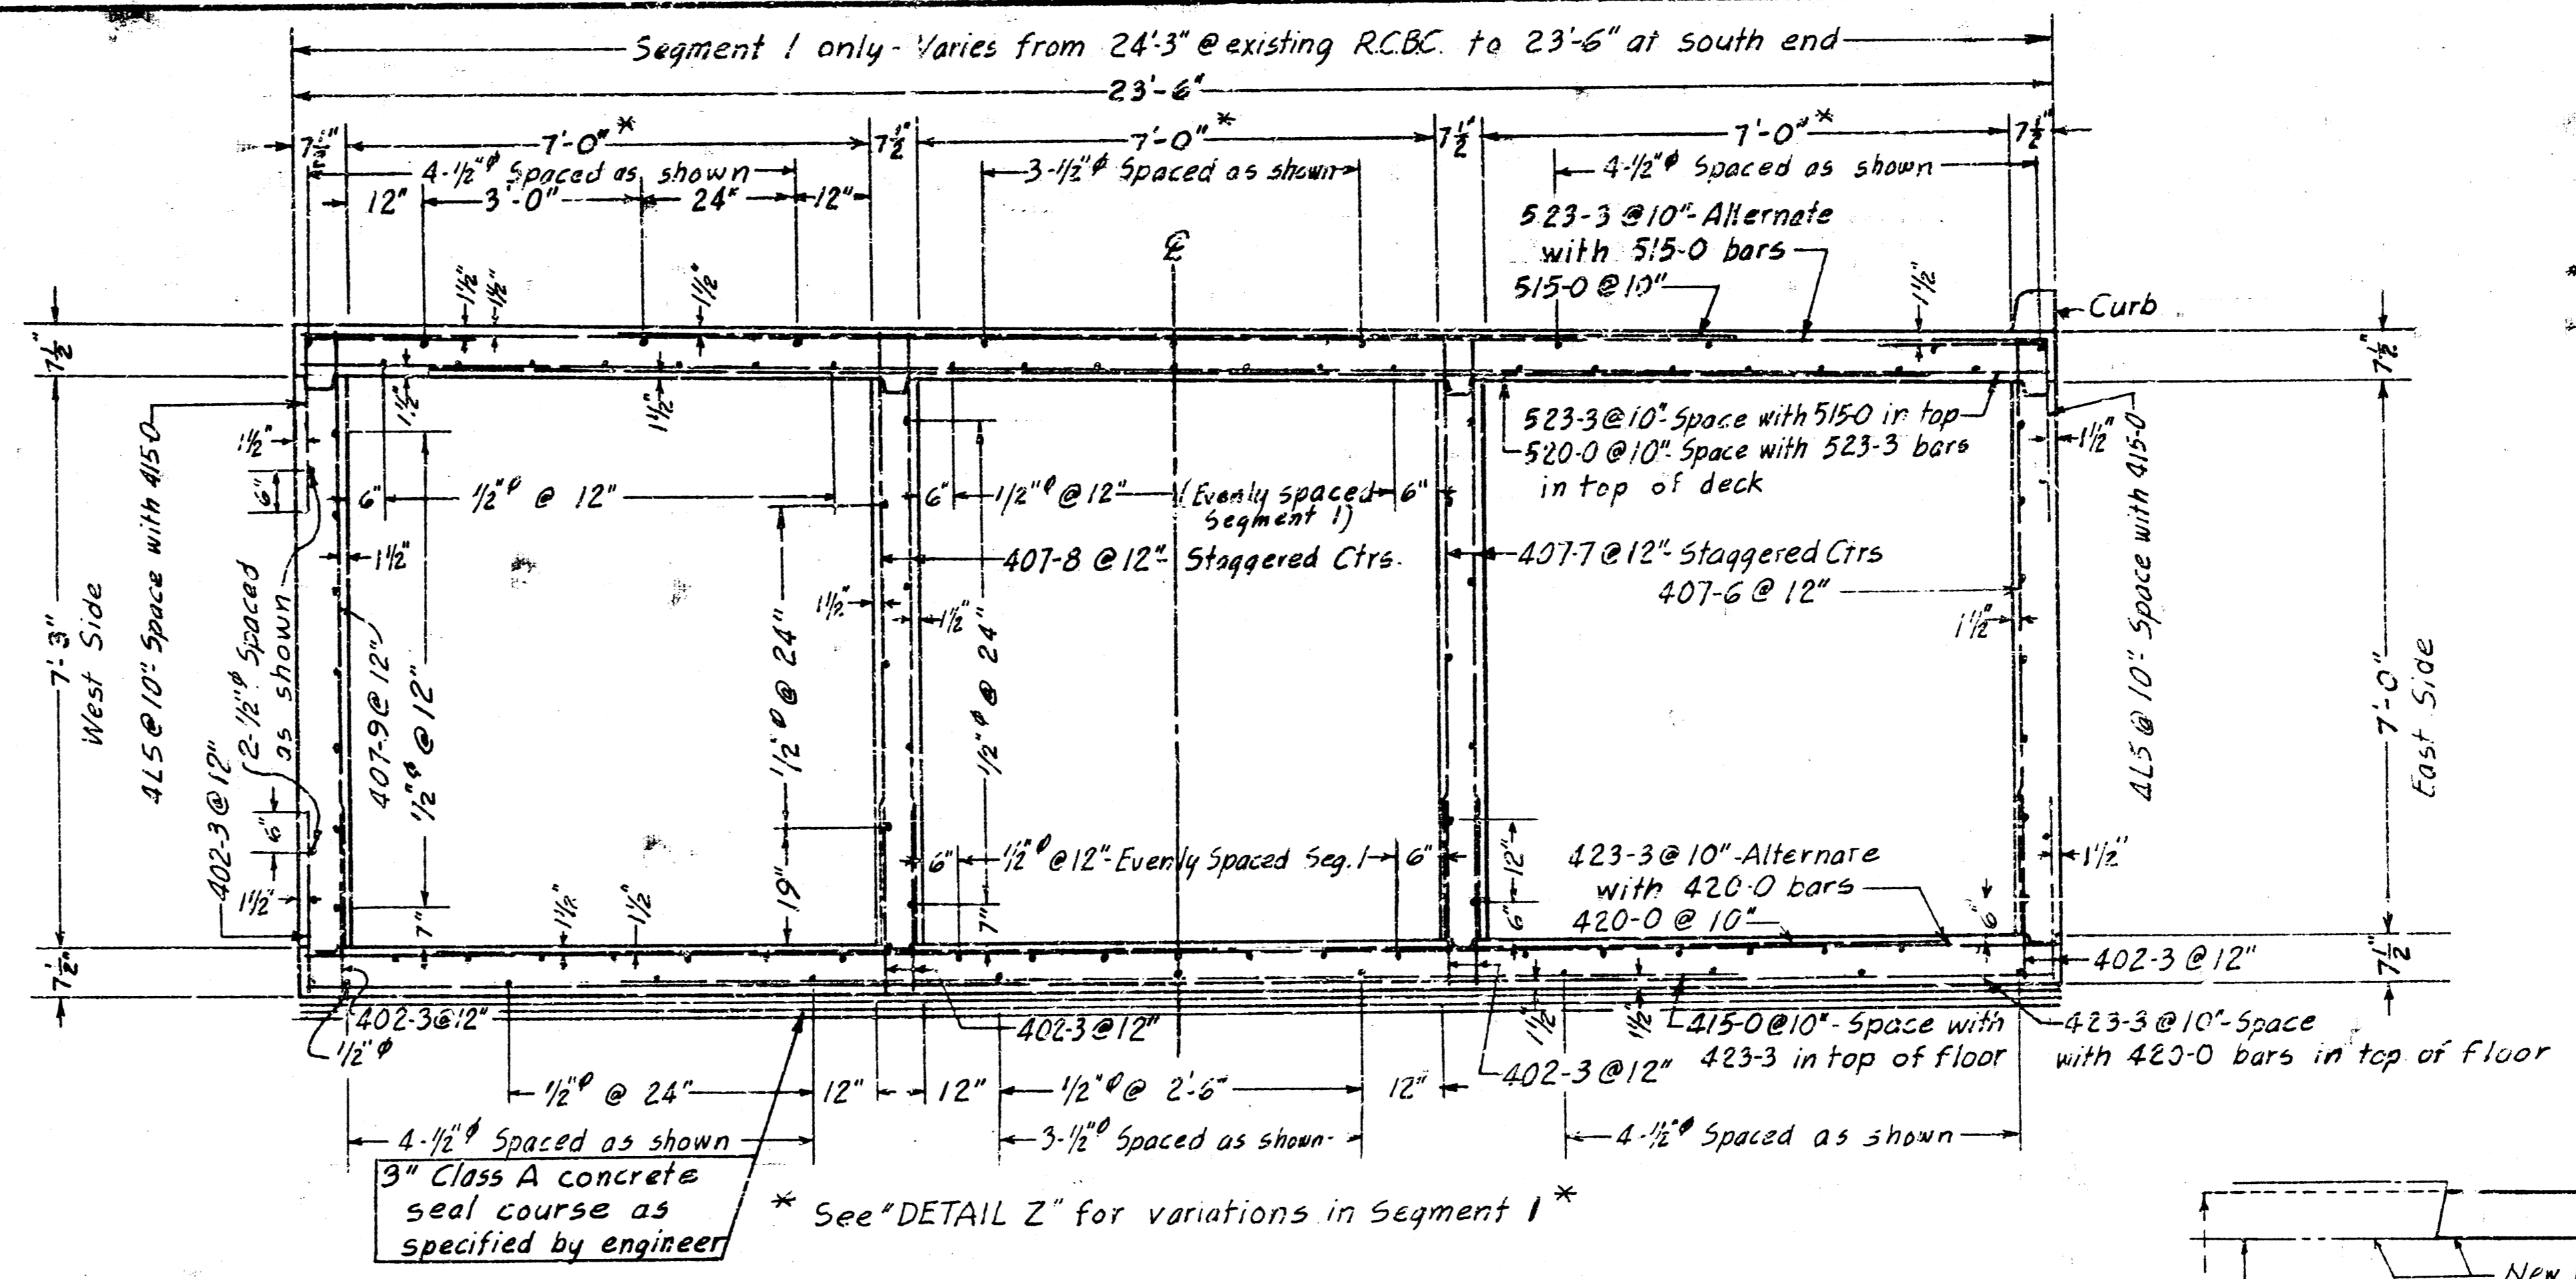 Segment 1 only - Varies from 24'-3" @ existing R.C.B.C. to 23'-6" at south end
23'-6"
7½" 7'-0" * 7½" 7'-0" * 7½" 7'-0" * 7½"
4-½"ᶲ Spaced as shown 3-½"ᶲ Spaced as shown 4-½"ᶲ Spaced as shown
12" 3'-0" 24" 12"
523-3 @ 10"- Alternate
with 515-0 bars
515-0 @ 10"
℄
1½" 1½" 1½" 1½"
Curb
7½" 7½"
1½" 1½"
523-3 @ 10"- Space with 515-0 in top
520-0 @ 10"- Space with 523-3 bars
in top of deck
1½" 1½"
6" 6" ½"ᶲ @ 12" 6" ½"ᶲ @ 12" (Evenly spaced 6"
Segment 1)
1½" 407-8 @ 12"- Staggered Ctrs. 407-7 @ 12"- Staggered Ctrs
407-6 @ 12"
1½" 1½" 1½"
7'-3"
West Side
4L5 @ 10"- Space with 415-0
402-3 @ 12"
2-½"ᶲ Spaced
as shown
407-9 @ 12"
½"ᶲ @ 12"
½"ᶲ @ 24"
½"ᶲ @ 24"
4L5 @ 10"- Space with 415-0
7'-0"
East Side
6" 19" 6" ½"ᶲ @ 12"- Evenly Spaced Seg. 1 6" 12"
423-3 @ 10"- Alternate
with 420-0 bars
420-0 @ 10"
1½" 7" 1½" 1½" 7" 6" 6" 1½"
7½" 402-3 @ 12" 7½"
402-3 @ 12" 402-3 @ 12"
½"ᶲ
1½" 1½" 415-0 @ 10"- Space with
423-3 in top of floor
423-3 @ 10"- Space
with 420-0 bars in top of floor
402-3 @ 12"
½"ᶲ @ 24" 12" 12" ½"ᶲ @ 2'-6" 12"
4-½"ᶲ Spaced as shown 3-½"ᶲ Spaced as shown 4-½"ᶲ Spaced as shown
3" Class A concrete
seal course as
specified by engineer
* See "DETAIL Z" for variations in Segment 1 *
New
*